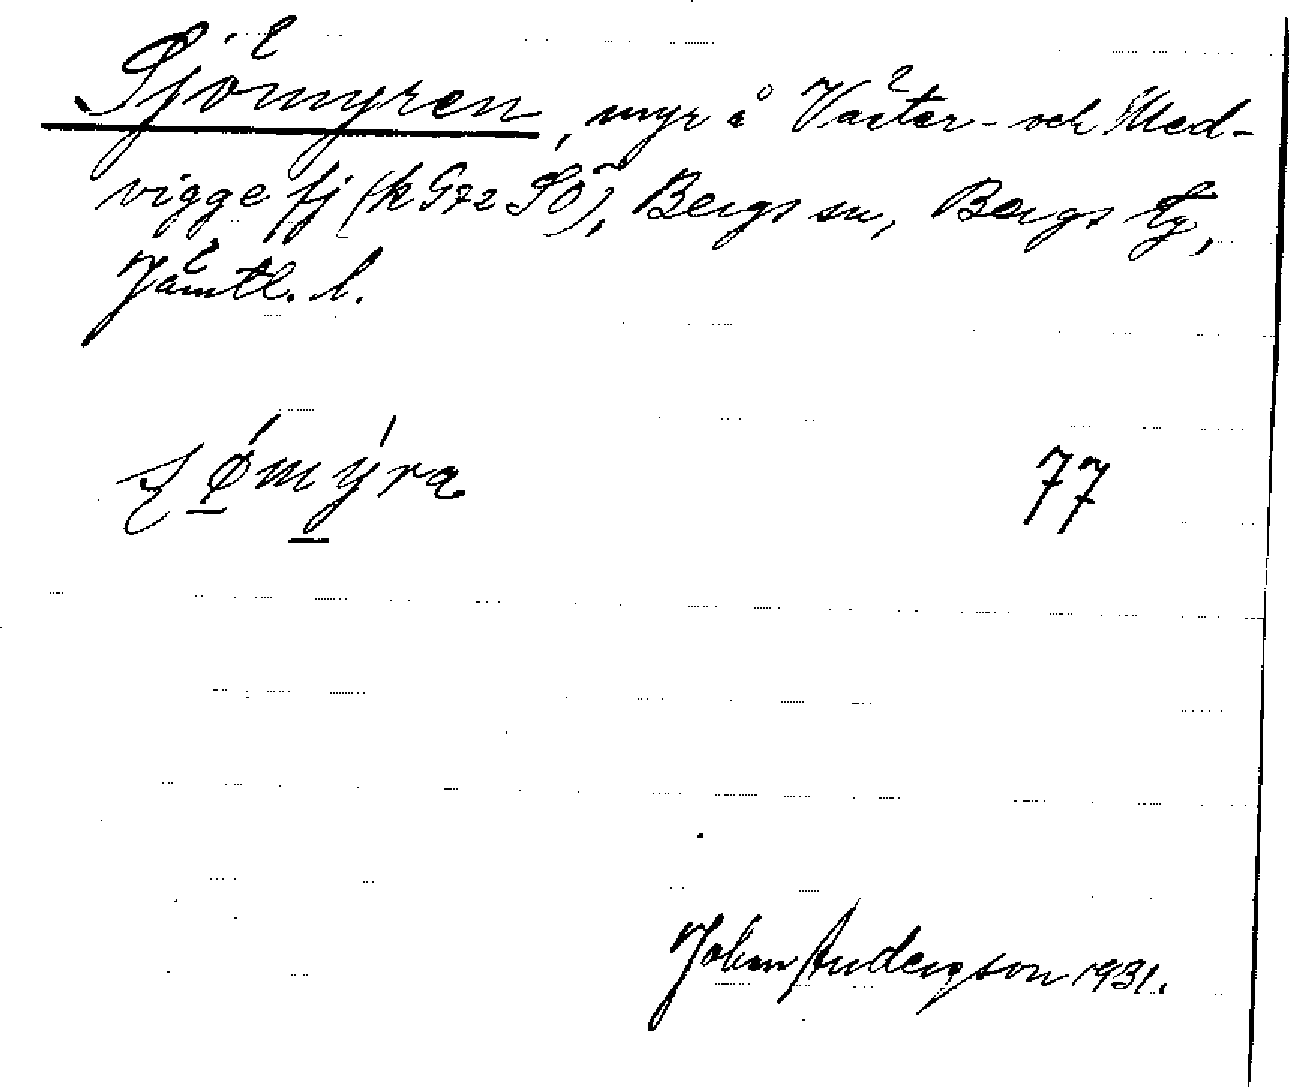 Sjömyren, myr å Väster- och Med-
vigge fj (k G72 SÖ), Bergs sn, Bergs tg,
Jämtl. l.
ʃǿ̱mý̱ra 77
Johan Anderson 1931.